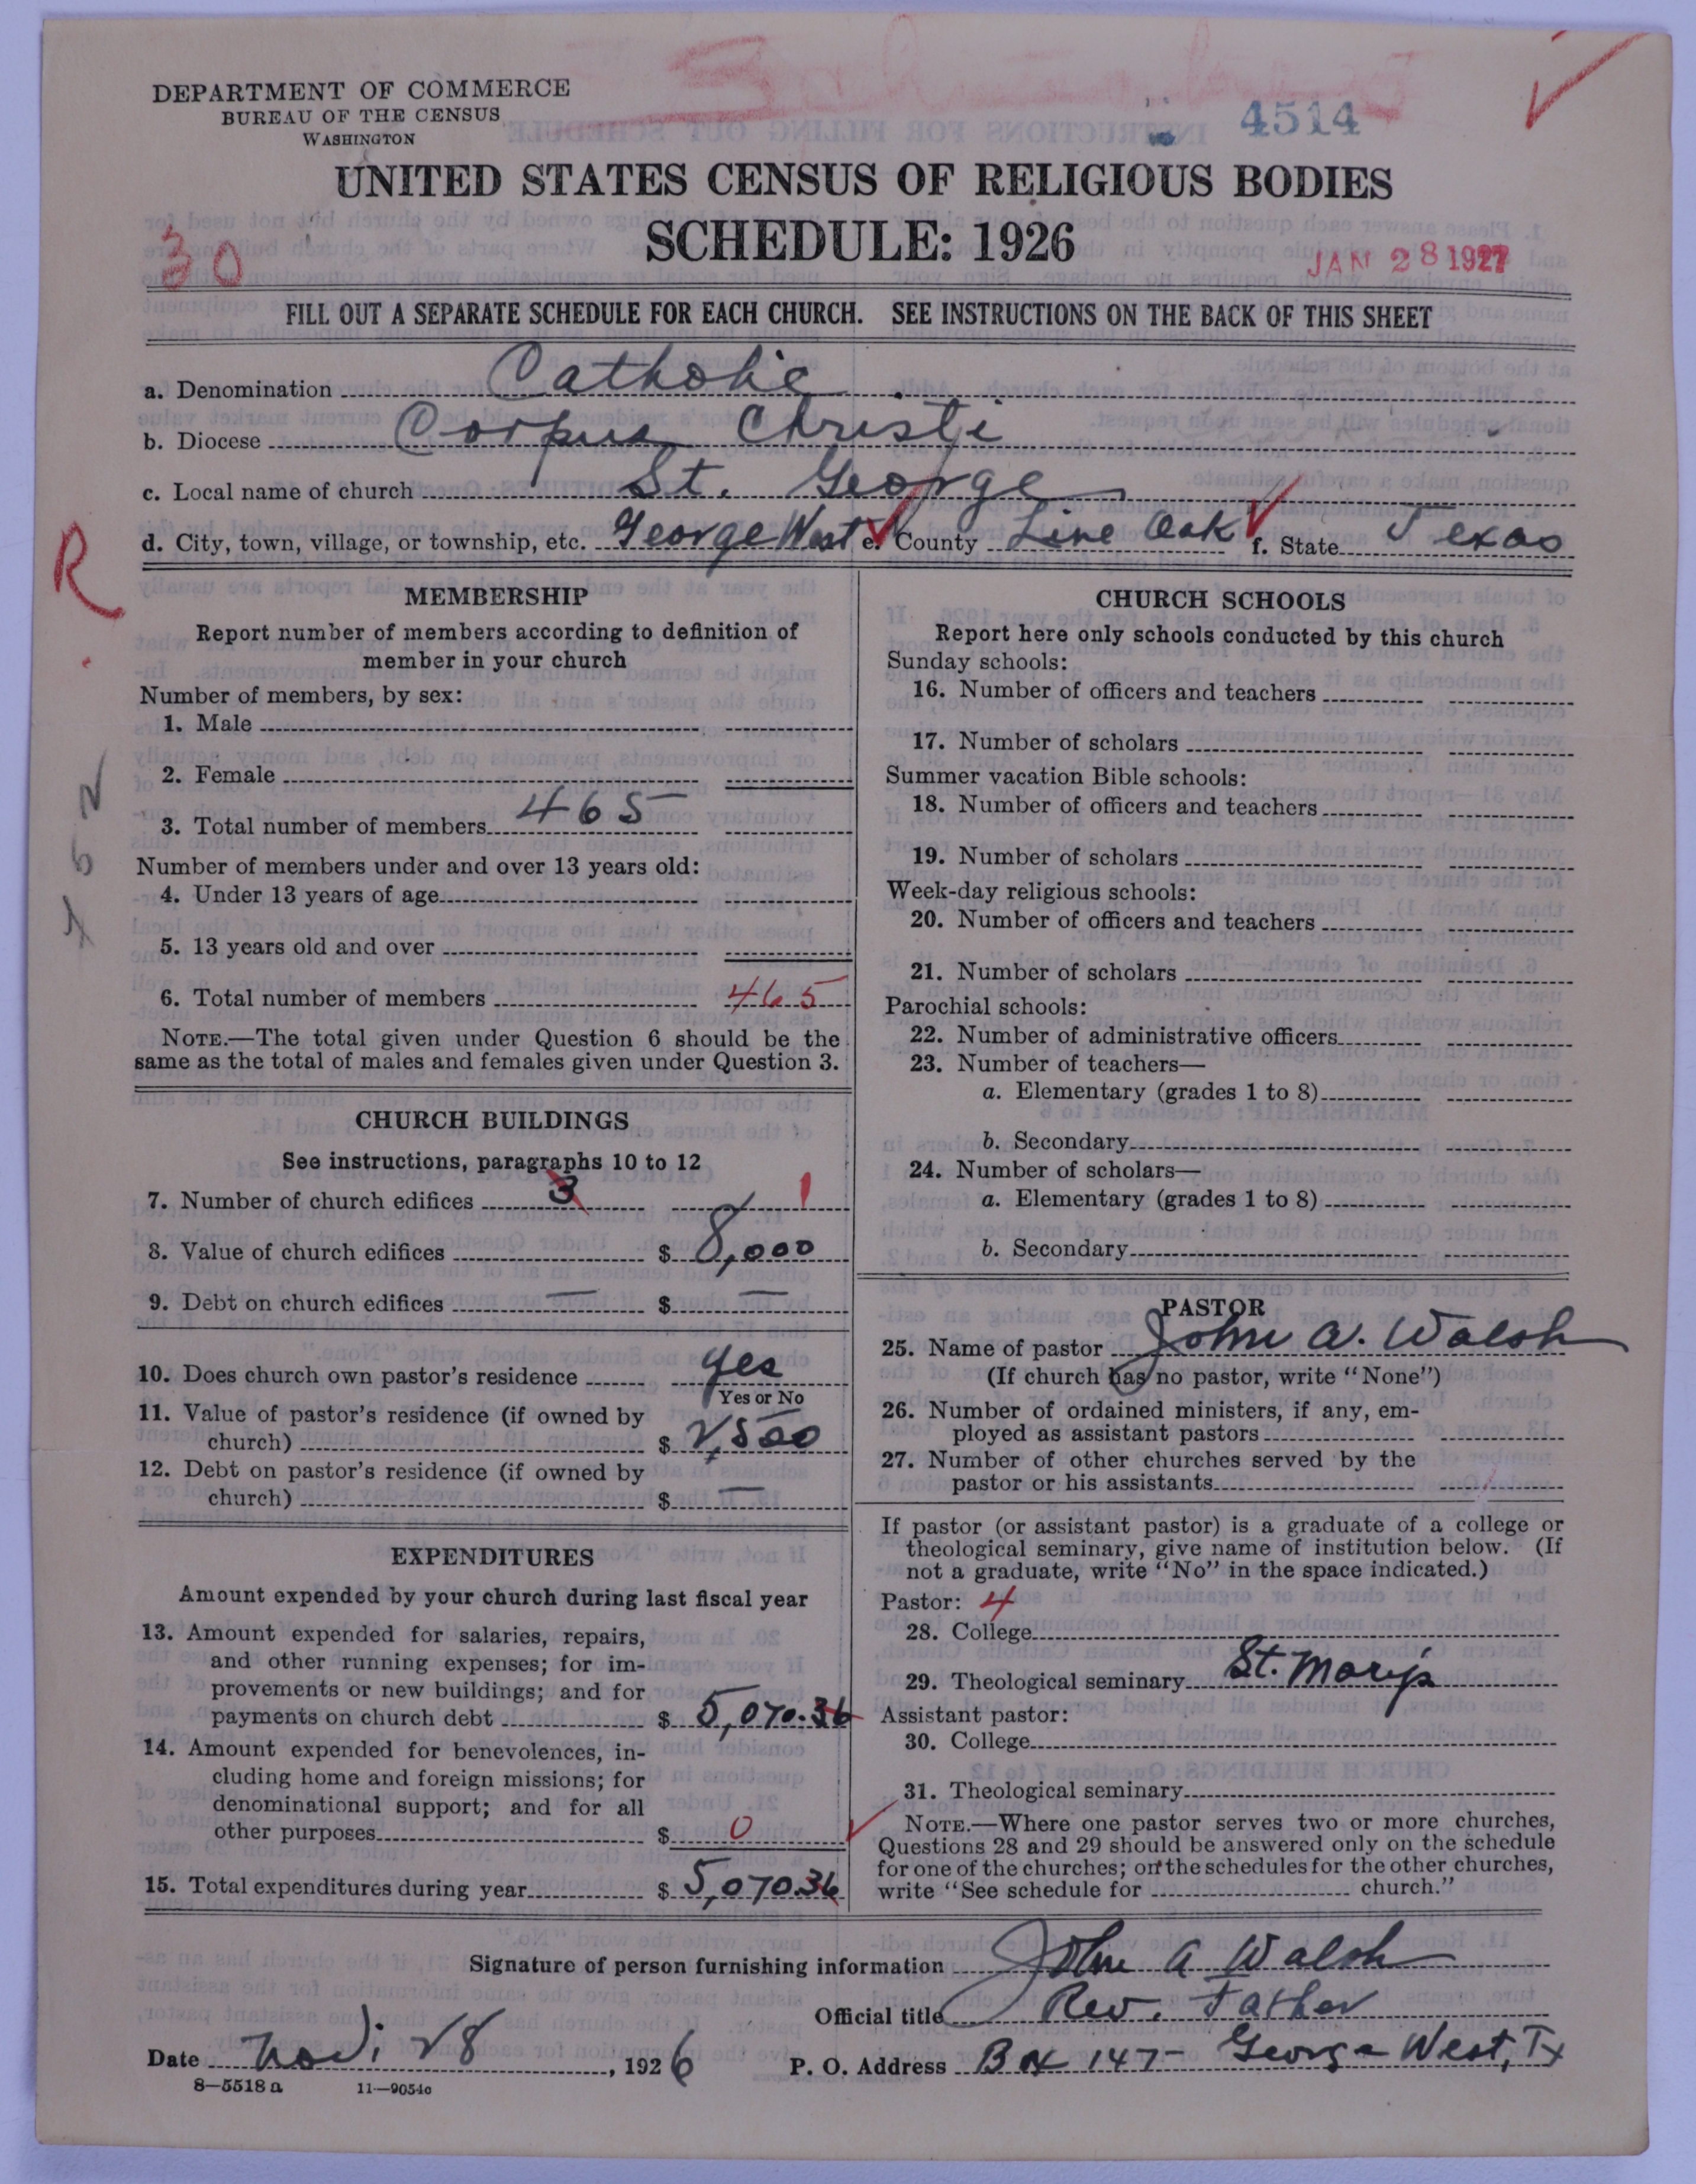 DEPARTMENT OF COMMERCE
BUREAU OF THE CENSUS
WASHINGTON
4514
UNITED STATES CENSUS OF RELIGIOUS BODIES
SCHEDULE: 1926
30
JAN 28 1927
FILL OUT A SEPARATE SCHEDULE FOR EACH CHURCH. SEE INSTRUCTIONS ON THE BACK OF THIS SHEET
a. Denomination Catholic
b. Diocese Corpus Christi
c. Local name of church St. George
d. City, town, village, or township, etc. George West e. County Live Oak f. State Texas
R
MEMBERSHIP
Report number of members according to definition of
member in your church
Number of members, by sex:
1. Male
2. Female
3. Total number of members 465
Number of members under and over 13 years old:
4. Under 13 years of age
5. 13 years old and over
6. Total number of members 465
NOTE.—The total given under Question 6 should be the
same as the total of males and females given under Question 3.
CHURCH BUILDINGS
See instructions, paragraphs 10 to 12
7. Number of church edifices 3 1
8. Value of church edifices $ 8,000
9. Debt on church edifices — $ —
10. Does church own pastor's residence yes
Yes or No
11. Value of pastor's residence (if owned by
church) $ 2,500
12. Debt on pastor's residence (if owned by
church) $ —
EXPENDITURES
Amount expended by your church during last fiscal year
13. Amount expended for salaries, repairs,
and other running expenses; for im-
provements or new buildings; and for
payments on church debt $ 5,070.36
14. Amount expended for benevolences, in-
cluding home and foreign missions; for
denominational support; and for all
other purposes $ 0
15. Total expenditures during year $ 5,070.36
CHURCH SCHOOLS
Report here only schools conducted by this church
Sunday schools:
16. Number of officers and teachers
17. Number of scholars
Summer vacation Bible schools:
18. Number of officers and teachers
19. Number of scholars
Week-day religious schools:
20. Number of officers and teachers
21. Number of scholars
Parochial schools:
22. Number of administrative officers
23. Number of teachers—
a. Elementary (grades 1 to 8)
b. Secondary
24. Number of scholars—
a. Elementary (grades 1 to 8)
b. Secondary
PASTOR
25. Name of pastor John A. Walsh
(If church has no pastor, write "None")
26. Number of ordained ministers, if any, em-
ployed as assistant pastors
27. Number of other churches served by the
pastor or his assistants
If pastor (or assistant pastor) is a graduate of a college or
theological seminary, give name of institution below. (If
not a graduate, write "No" in the space indicated.)
Pastor: 4
28. College
29. Theological seminary St. Mary's
Assistant pastor:
30. College
31. Theological seminary
NOTE.—Where one pastor serves two or more churches,
Questions 28 and 29 should be answered only on the schedule
for one of the churches; on the schedules for the other churches,
write "See schedule for church."
Signature of person furnishing information John A Walsh
Official title Rev. Father
Date Nov. 28, 1926 P. O. Address Box 147 George West, Tx
8—5518 a 11—9054c